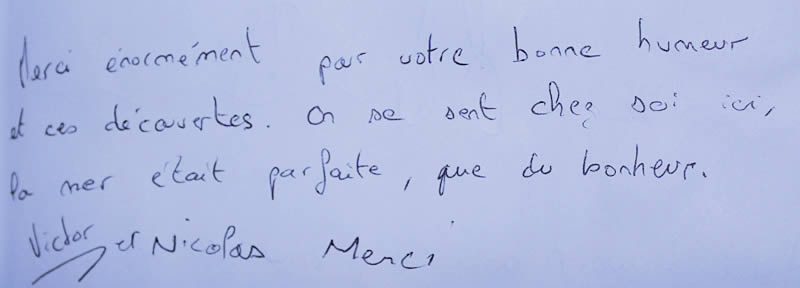 Merci énormément pour votre bonne humeur
et ces découvertes. On se sent chez soi ici,
la mer était parfaite, que du bonheur.
Victor et Nicolas Merci